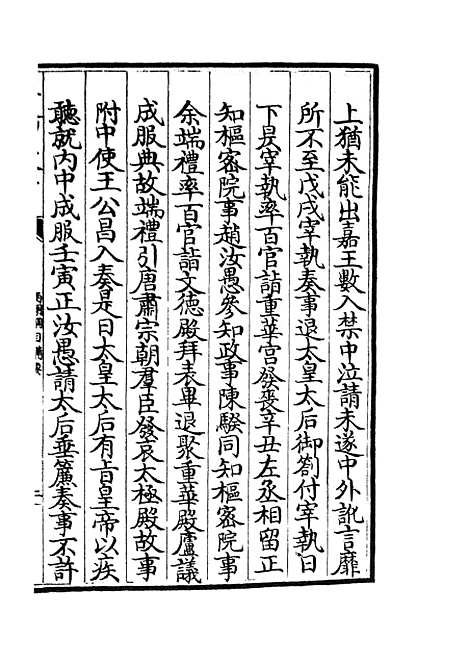 上猶未能出嘉王數入禁中泣請未遂中外訛言靡
所不至戊戌宰執奏事退太皇太后御劄付宰執曰
下是宰執率百官詣重華宮發喪辛丑左丞相留正
知樞密院事趙汝愚參知政事陳騤同知樞密院事
余端禮率百官詣文德殿拜表畢退聚重華殿廬議
成服典故端禮引唐肅宗朝羣臣發哀太極殿故事
附中使王公昌入奏是日太皇太后有旨皇帝以疾
聽就內中成服壬寅正汝愚請太后垂簾奏事不許